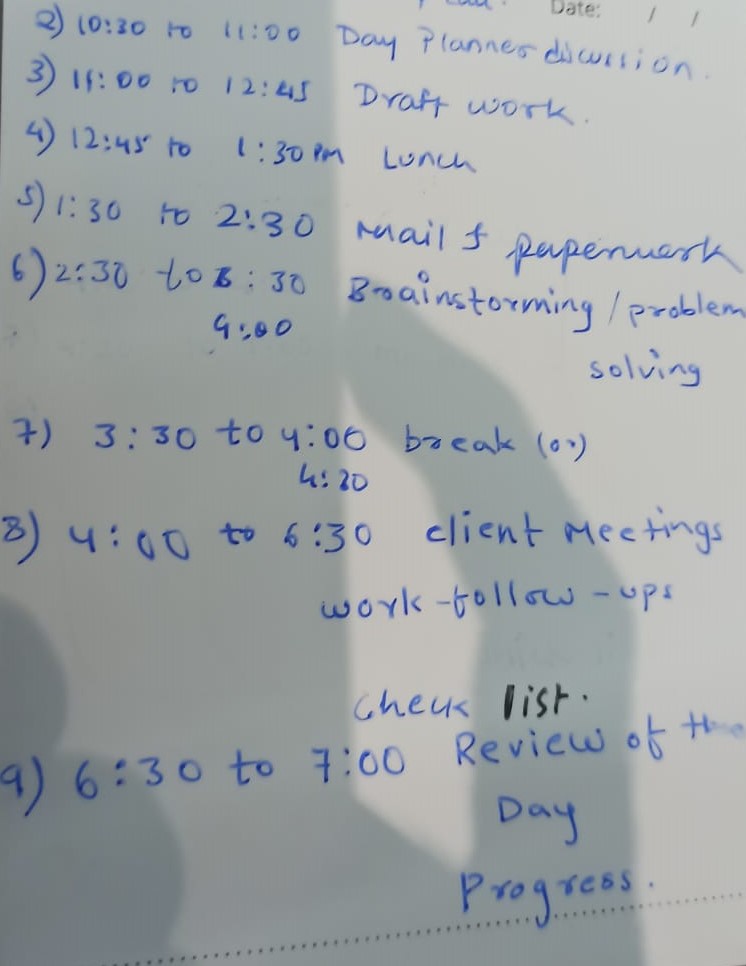 Date: / /
2) 10:30 to 11:00 Day Planner discussion.
3) 11:00 to 12:45 Draft work.
4) 12:45 to 1:30 PM Lunch
5) 1:30 to 2:30 Mail & paperwork
6) 2:30 to 3:30 Brainstorming / problem
4:00 solving
7) 3:30 to 4:00 break (or)
4:20
8) 4:00 to 6:30 client Meetings
work-follow-ups
check list.
9) 6:30 to 7:00 Review of the
Day
Progress.